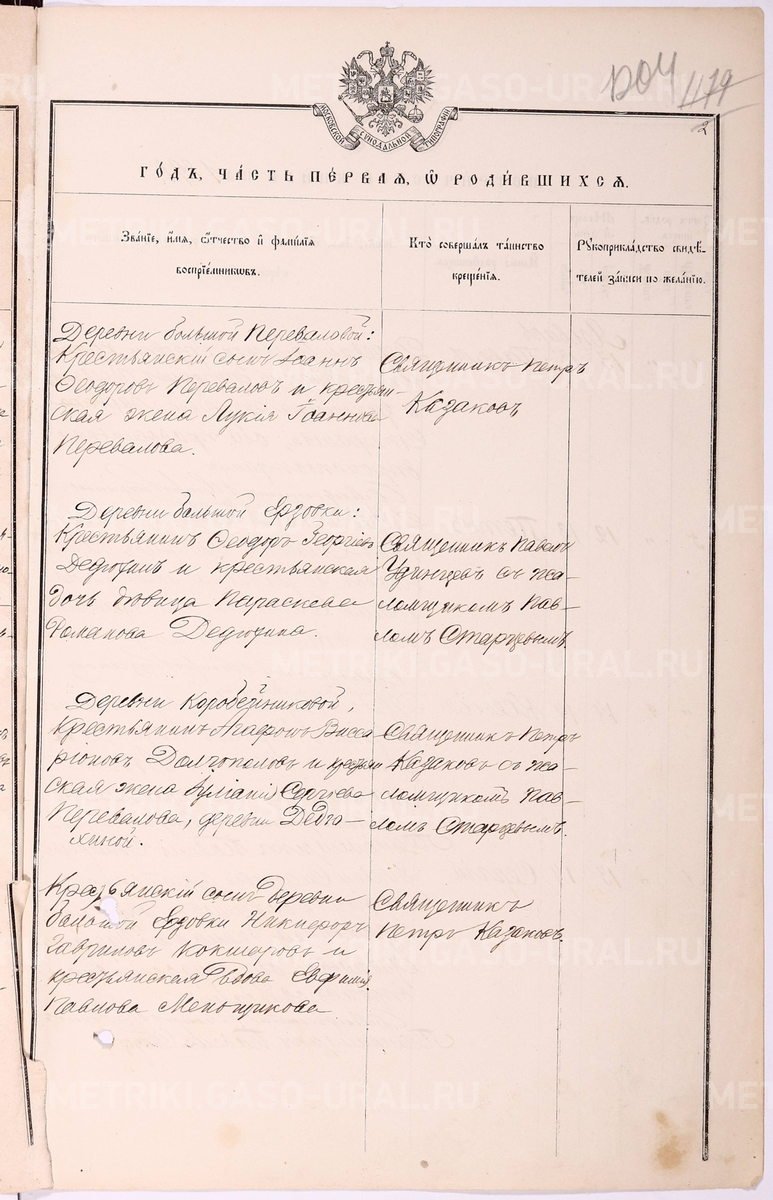 ДОЧ 1179
2
МОСКОВСКОЙ СУНОДАЛЬНОЙ ТИПОГРАФІИ
ГО́ДЪ, ЧА́СТЬ ПЕ́РВАЯ, Ѡ РОДИ́ВШИХСЯ.
Зва́ніе, и́мя, ѻ́тчество и҆ фами́лія
воспріе́мниковъ.
Кто̀ соверша́лъ та́инство
креще́нія.
Рꙋкоприкла́дство свидѣ́-
телей за́писи по жела́нію.
Деревни большой Переваловой:
Крестьянскій сынъ Іоаннъ
Ѳеодоровъ Переваловъ и крестьян-
ская жена Лукія Іоаннова
Перевалова.
Священникъ Петръ
Казаковъ
Деревни большой Ерзовки:
Крестьянинъ Ѳеодоръ Георгіевъ
Дедюхинъ и крестьянская
дочь дѣвица Параскева
Романова Дедюхина.
Священникъ Павелъ
Удинцевъ съ пса-
ломщикомъ Пав-
ломъ Старцевымъ.
Деревни Коробейниковой,
Крестьянинъ Агафонъ Висса
ріоновъ Долгополовъ и крестьян
ская жена Іуліанія Сергіева
Перевалова, деревни
хиной.
Священникъ Петръ
Казаковъ съ пса-
ломщикомъ Пав-
ломъ Старцевымъ.
Крестьянскій сынъ деревни
большой Ерзовки Никифоръ
Гавриловъ Кокшаровъ и
крестьянская вдова Евфимія
Павлова Меньщикова
Священникъ
Петръ Казаковъ.
METRIKI.GASO-URAL.RU